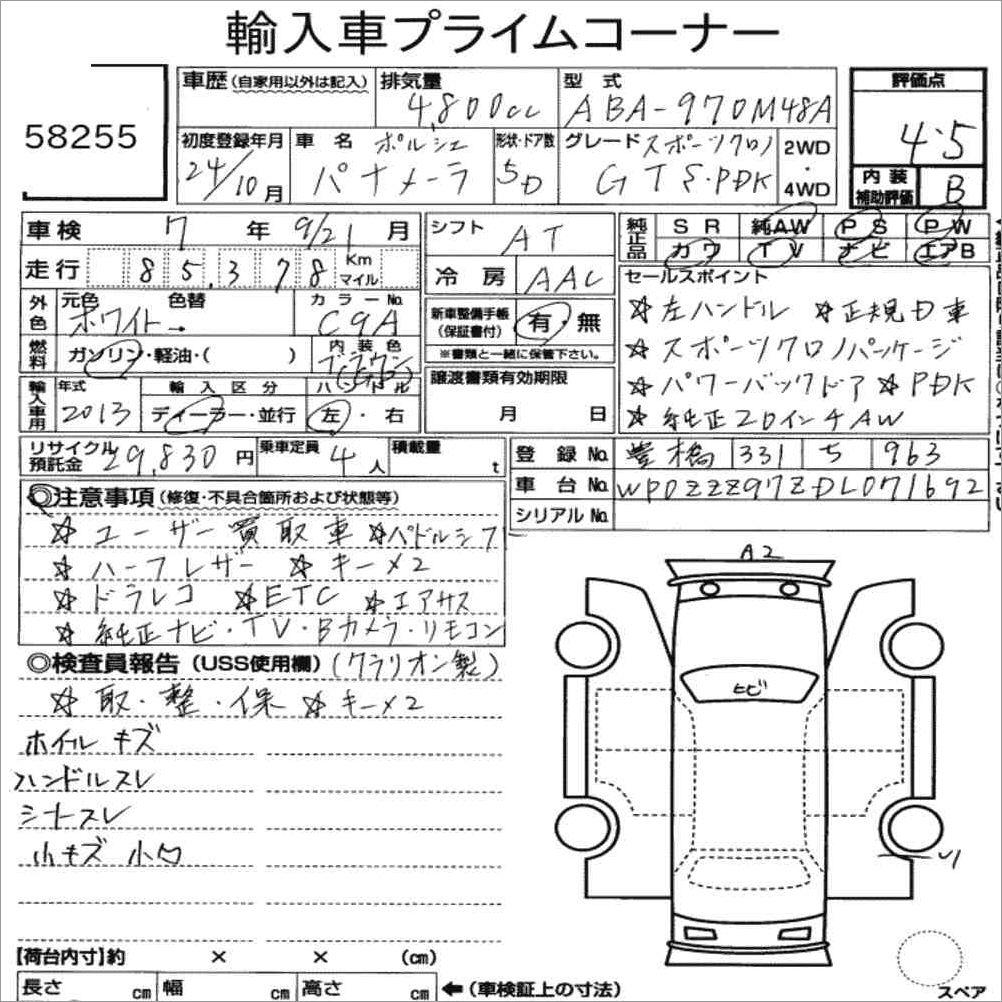 輸入車プライムコーナー
58255
車歴(自家用以外は記入) 排気量 4,800cc 型式 ABA-970M48A
評価点 4.5
初度登録年月 24/10月 車名 ポルシェ パナメーラ 形状・ドア数 5D グレード スポーツクロノ GTS・PDK 2WD・4WD
内装補助評価 B
車検 7年 9/21月 シフト AT
純正品 SR 純AW PS PW
カワ TV ナビ エアB
走行 85,378 Km マイル 冷房 AAC
セールスポイント
外色 元色 色替 カラーNo.
ホワイト→ C9A
☆左ハンドル ☆正規D車
新車整備手帳(保証書付) 有・無
※書類と一緒に保管下さい。
☆スポーツクロノパッケージ
燃料 ガソリン・軽油・( ) 内装色 ブラウン
☆パワーバックドア ☆PDK
輸入車用 年式 2013 輸入区分 ディーラー・並行 ハンドル 左・右
譲渡書類有効期限 月 日
☆純正20インチAW
リサイクル預託金 29,830円 乗車定員 4人 積載量 t
登録No. 豊橋 331 ち 963
車台No. WP0ZZZ97ZDL071692
シリアルNo.
◎注意事項(修復・不具合箇所および状態等)
☆ユーザー買取車 ☆パドルシフ
☆ハーフレザー ☆キーメ2
☆ドラレコ ☆ETC ☆エアサス
☆純正ナビ・TV・Bカメラ・リモコン
◎検査員報告(USS使用欄)(クラリオン製)
☆取・整・保 ☆キーメ2
ホイルキズ
ハンドルスレ
シートスレ
小キズ 小凹
A2
ヒビ
【荷台内寸】約 × × (cm)
長さ cm 幅 cm 高さ cm ←(車検証上の寸法)
スペア